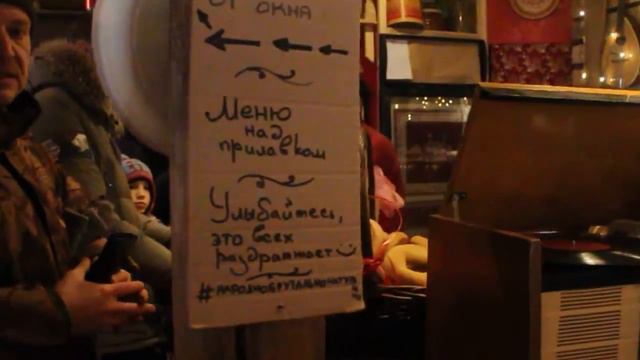 от окна
Меню
над
прилавком
Улыбайтесь,
это всех
раздражает